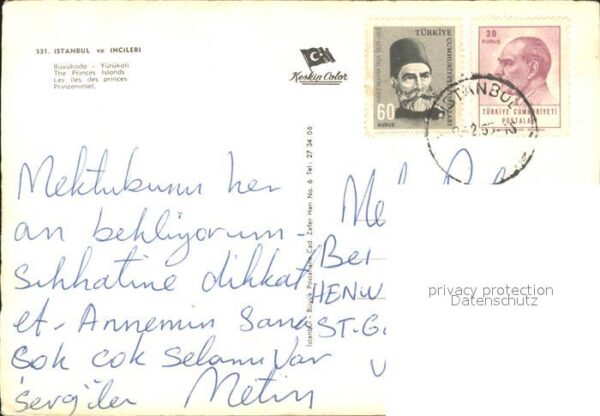 331. ISTANBUL ve INCILERI
Büyükada - Yürükali
The Princes Islands
Les îles des princes
Prinzeninsel,
Keskin Color
TÜRKİYE
CUMHURİYETİ
60
KURUŞ
30
KURUŞ
TÜRKİYE CUMHURİYETİ
POSTALARI
ISTANBUL
Istanbul - Büyük Postahane Cad. Zafer Han No. 6 Tel: 27 34 06
Mektubunu her
an bekliyorum -
sıhhatine dikkat
et - Annemin sana
çok çok selamı var
sevgiler Metin
HENW
ST-Ga
privacy protection
Datenschutz